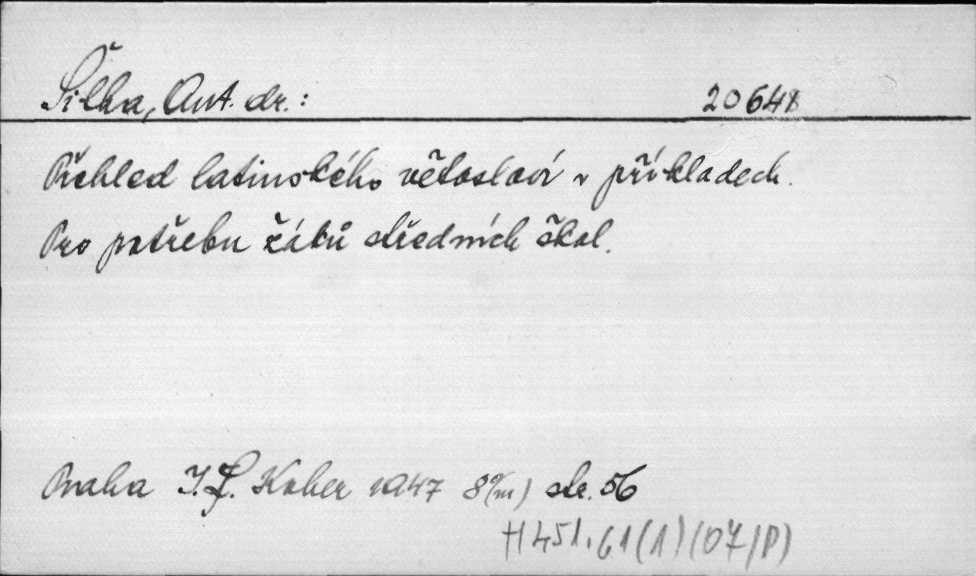 Šilha, Ant. dr.: 20648
Přehled latinského větosloví v příkladech.
Pro potřebu žáků středních škol.
Praha I.L. Kober 1947 8°(m) str. 56
H 451.61(1)(07/P)